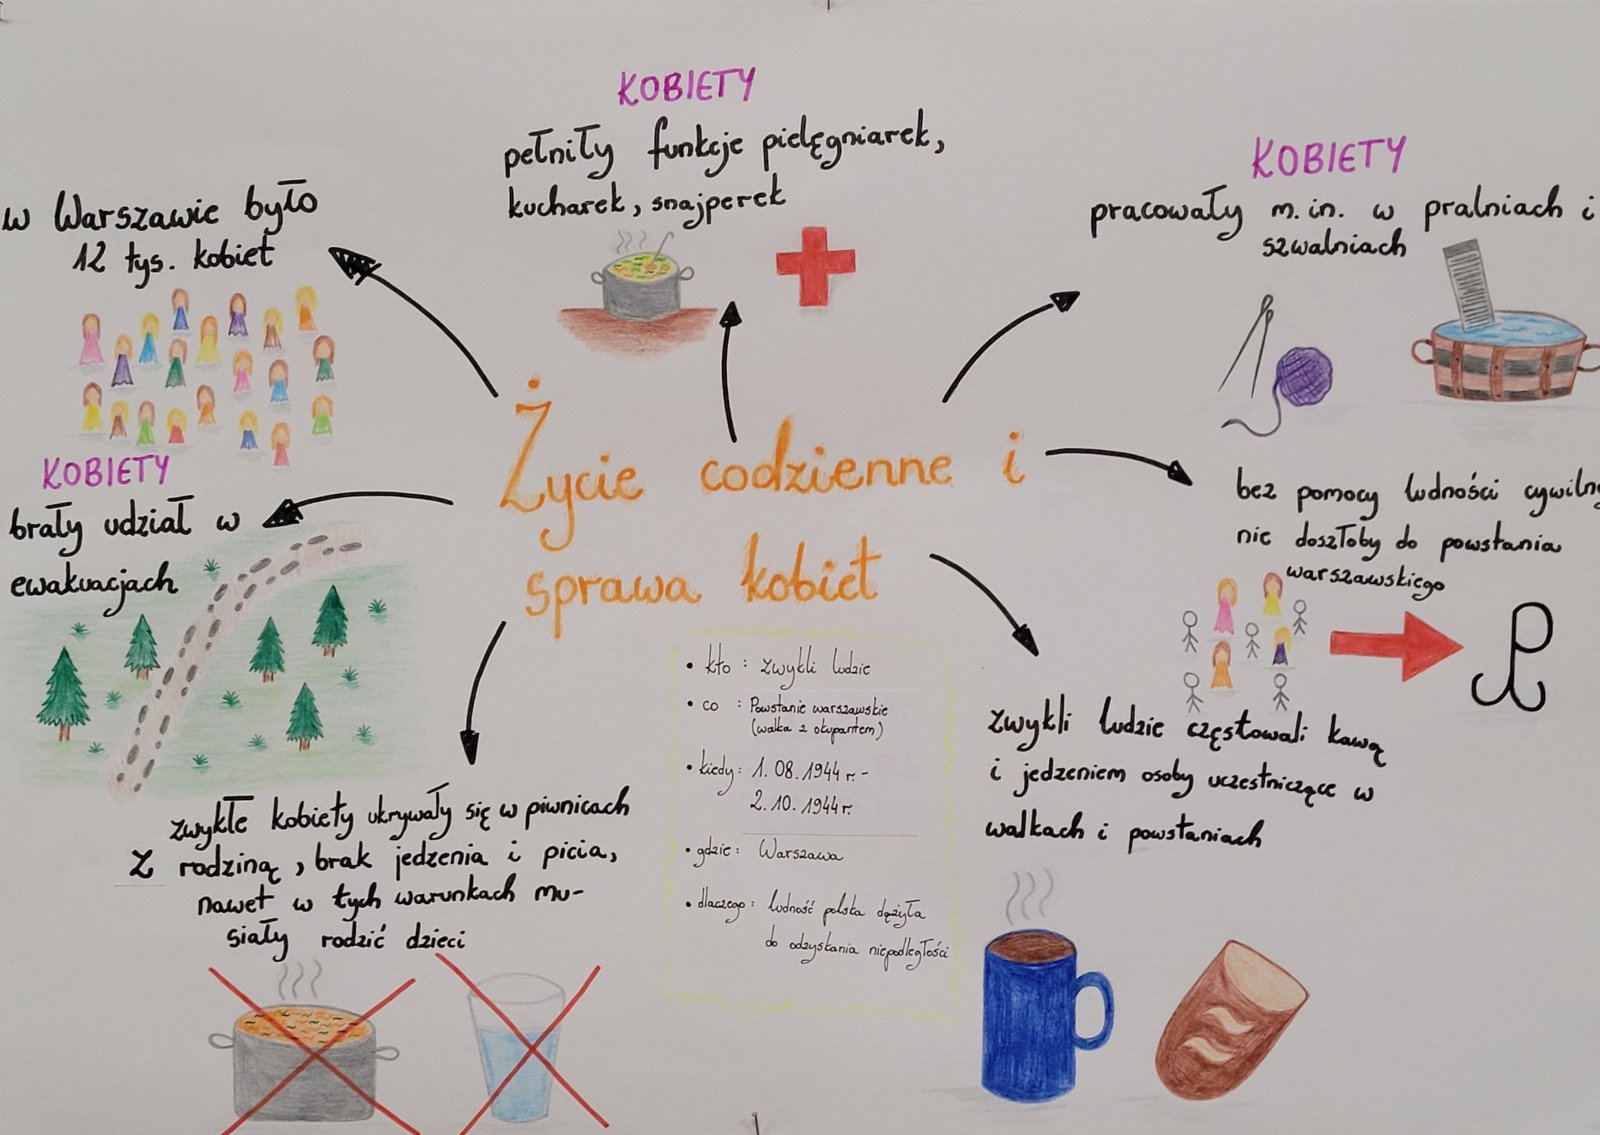 KOBIETY
pełniły funkcje pielęgniarek,
kucharek, snajperek
KOBIETY
pracowały m.in. w pralniach i
szwalniach
w Warszawie było
12 tys. kobiet
KOBIETY
brały udział w
ewakuacjach
Życie codzienne i
sprawa kobiet
bez pomocy ludności
nie doszłoby do powstania
warszawskiego
zwykli ludzie częstowali kawą
i jedzeniem osoby uczestniczące w
walkach i powstaniach
zwykłe kobiety ukrywały się w piwnicach
z rodziną, brak jedzenia i picia,
nawet w tych warunkach mu-
siały rodzić dzieci
• kto : zwykli ludzie
• co : Powstanie warszawskie
(walka z okupantem)
• kiedy: 1. 08. 1944 r. -
2. 10. 1944 r.
• gdzie: Warszawa
• dlaczego: ludność polska dążyła
do odzyskania niepodległości